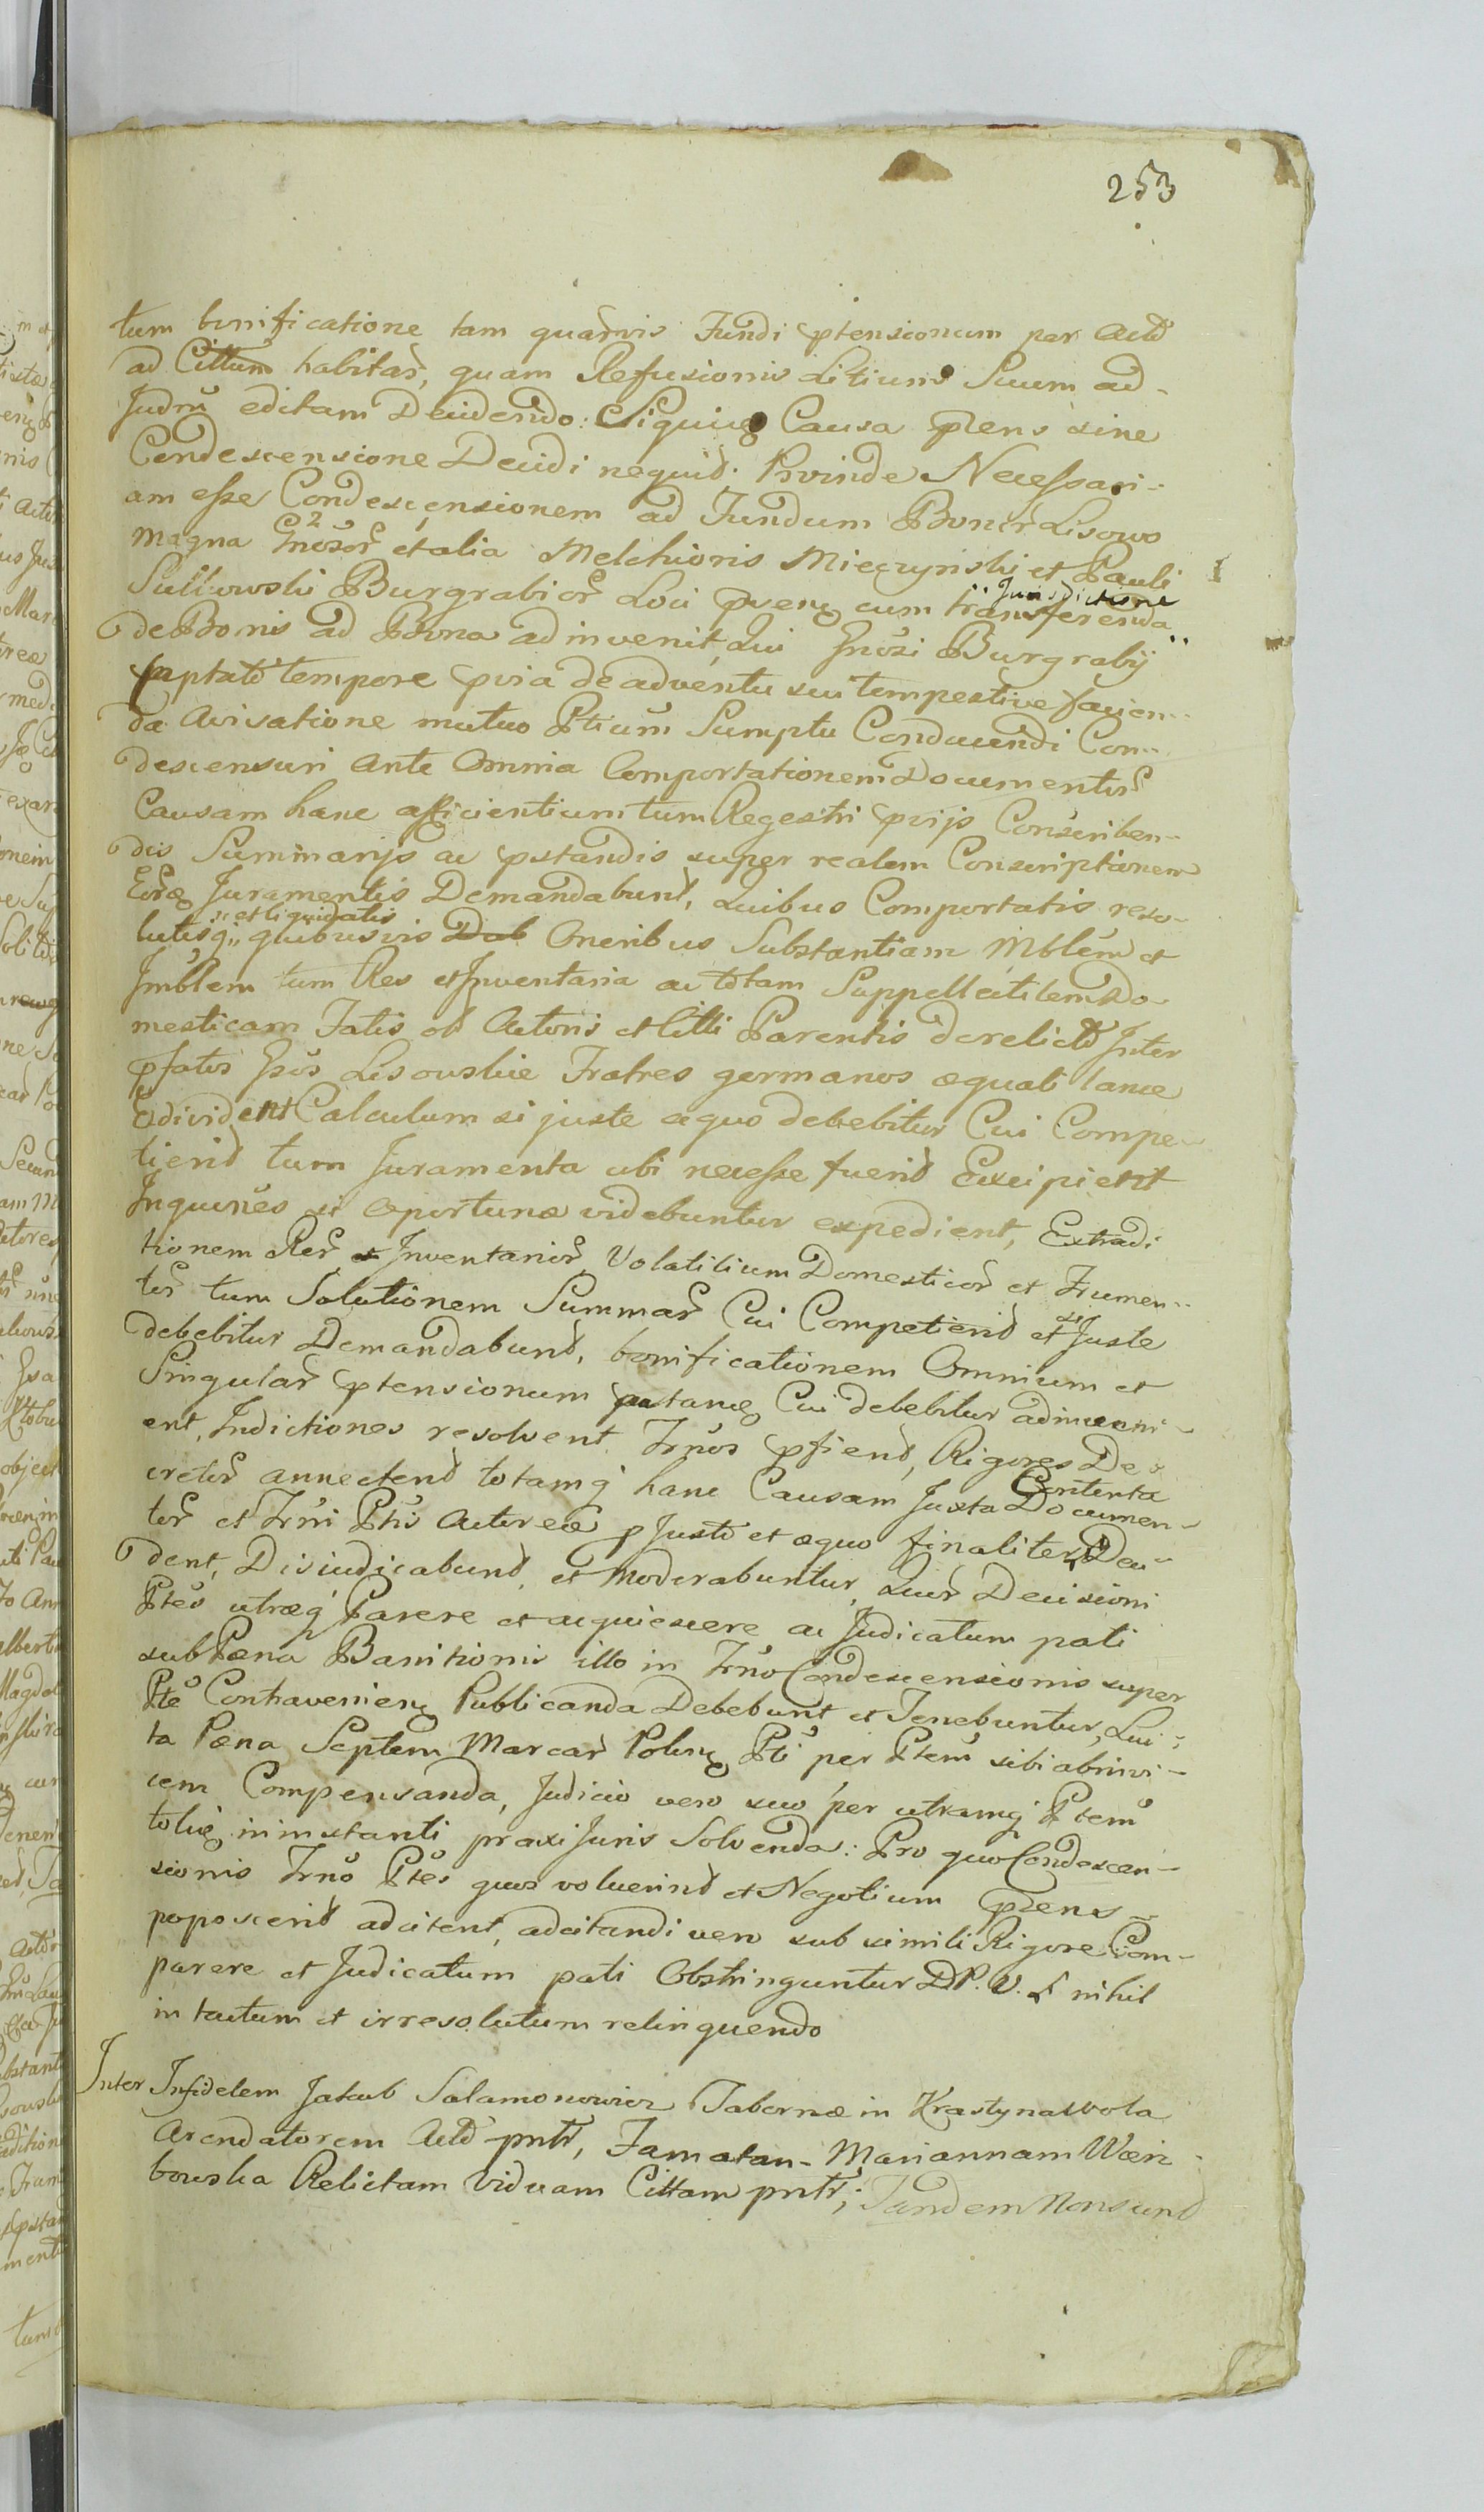 253
tum bonificatione tam quarvis Fundi ptensionum per Actor
ad Cittum habitar, quam Refusionis Litium Suum ad-
Judm editam Decidendo: Siquid Causa prens sine
Condescensione Decidi nequid. Proinde Necessari-
am esse Condescensionem ad Fundum Bonor Lisowo
magna Gnosor et alia Melchioris Mieczynski et Pauli
Sulkowski Burgrabior Loci prens cum Jurisdictione transferenda
de Bonis ad Bona adinvenit, Qui Gnosi Burgrabij
captato tempore pvia de adventu sui tempestive facien-
da Avisatione mutuo Ptium Sumptu Conducendi Con-
descensuri Ante Omnia Comportationem Documentor
Causam hanc afficientium tum Regestri pvijs Conscriben-
dis Summarijs ac pstandis super realem Conscriptionem
Eorq Juramentis Demandabund, Quibus Comportatis reso-
lutisq et liquidatis quibusvis Dab Oneribus Substantiam Mblem et
Jmblem tum Res et Inventaria ac totam Suppellectilem Do-
mesticam Fatis ob Actoris et Citti Parentis derelict Inter
pfatos Gsos Lisowskie Fratres germanos aequali lance
Edivident Calculum si juste aequo debebitur Cui Compe-
tierid tum Juramenta ubi necesse fuerid Excipient
Inquisnes si Oportunae videbuntur expedient, Extradi
tionem Rer et Inventarior, Volatilium Domesticor et Frumen-
tor tum Solutionem Summar Cui Competierid et si Juste
debebitur Demandabund, bonificationem Omnium et
Singular ptensionum pstanq Cui debebitur adinveni-
ent, Indictiones resolvent Trnos pfiend, Rigores De-
cretor annectend totamq hanc Causam Juxta Contenta Documen-
tor et Jrni Ptis Actoreae p Justo et aequo finaliter Deci-
dent, Disiudicabund et Moderabuntur, Quor Decisioni
Ptes utraeq Parere et acquiescere ac Judicatum pati
sub Paena Banitionis illo in Trno Condescensionis super
Pte Contravenienq Publicanda Debebunt et Tenebuntur, Lui-
ta Paena Septem Marcar Polnq Pti per Ptem sibi abinvi-
cem Compensanda, Judicio vero suo per utramq Ptem
toliq in instanti praxi Juris Solvenda: Pro quo Condescen-
sionis Trno Ptes quos voluerind et Negotium prens
poposcerid adcitent, adcitandi vero sub simili Rigore Com-
parere et Judicatum pati Obstringuntur D.P. V. L nihil
in tactum et irresolutum relinquendo
Inter Infidelem Jakub Salamonowicz Tabernae in Krastynawola
Arendatorem Acto pntr, Famatan- Mariannam Wierz-
bowska Relictam Viduam Cittam pntr; Tandem Nonsund